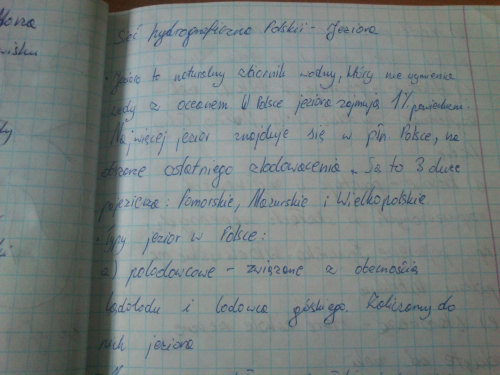 Sieć hydrograficzna Polski - Jeziora
• Jezioro to naturalny zbiornik wodny, który nie wymienia
wody z oceanem W Polsce jeziora zajmują 1% powierzchni.
Najwięcej jezior znajduje się w płn. Polsce, na
obszarze ostatniego zlodowacenia. Są to 3 duże
pojezierza: Pomorskie, Mazurskie i Wielkopolskie
• Typy jezior w Polsce:
a) polodowcowe - związane z obecnością
lądolodu i lodowca górskiego. Zaliczamy do
nich jeziora